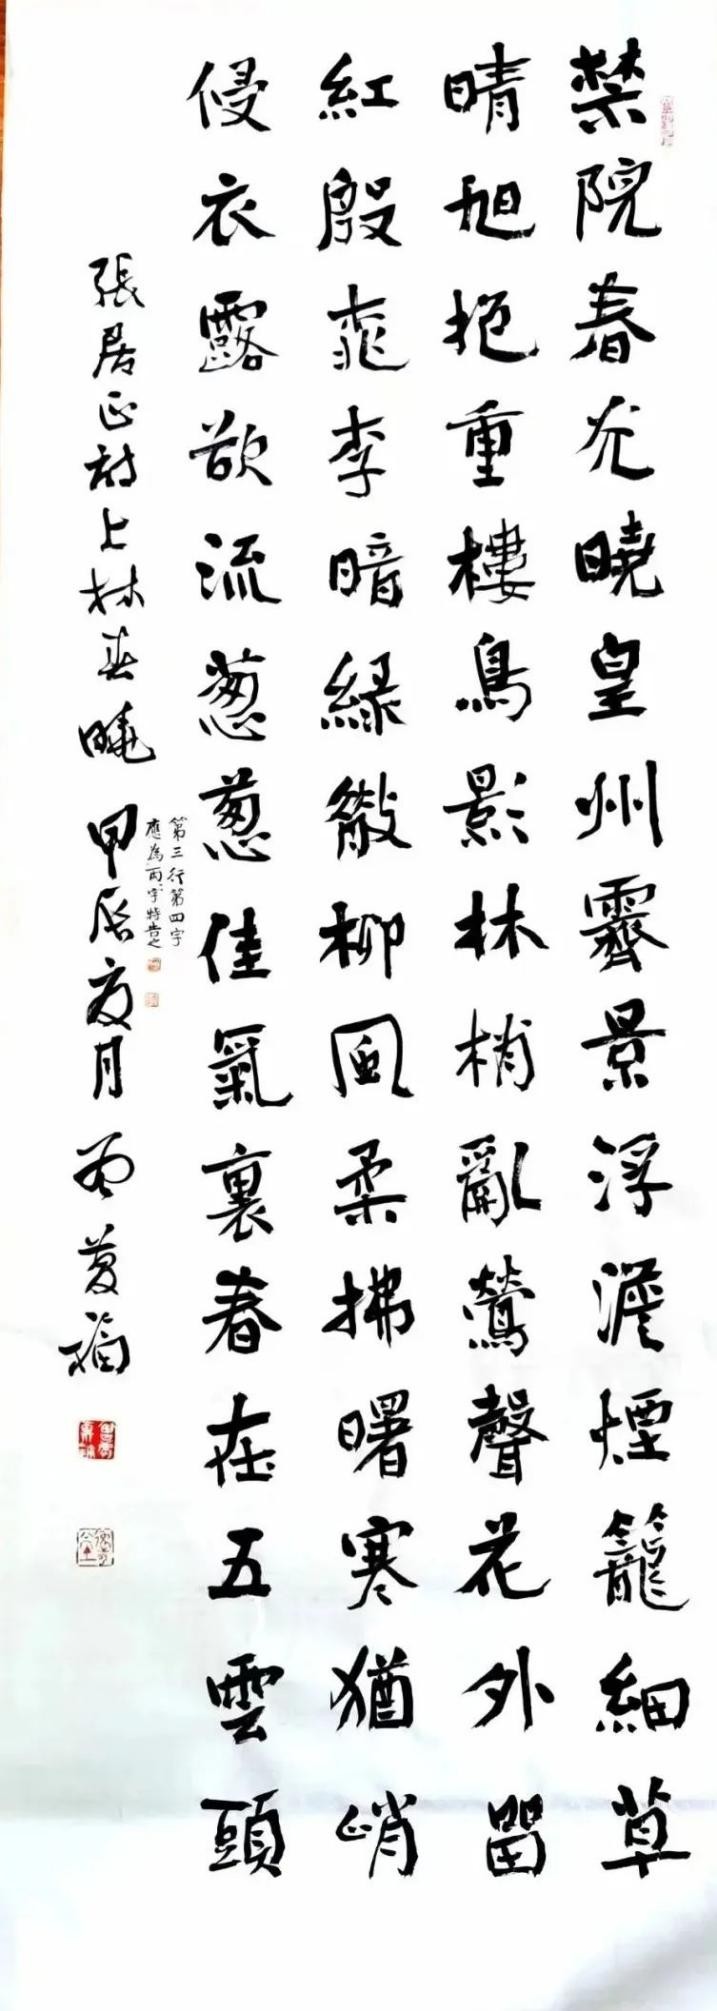 禁院春光曉皇州霽景浮澹煙籠細草
晴旭抱重樓鳥影林梢亂鶯聲花外留
紅殷桃李暗綠柳風柔拂曙寒猶峭
侵衣露欲流葱葱佳氣裏春在五雲頭
第三行第四字
應為雨字特誌
張居正詩上林春曉 甲辰夏月